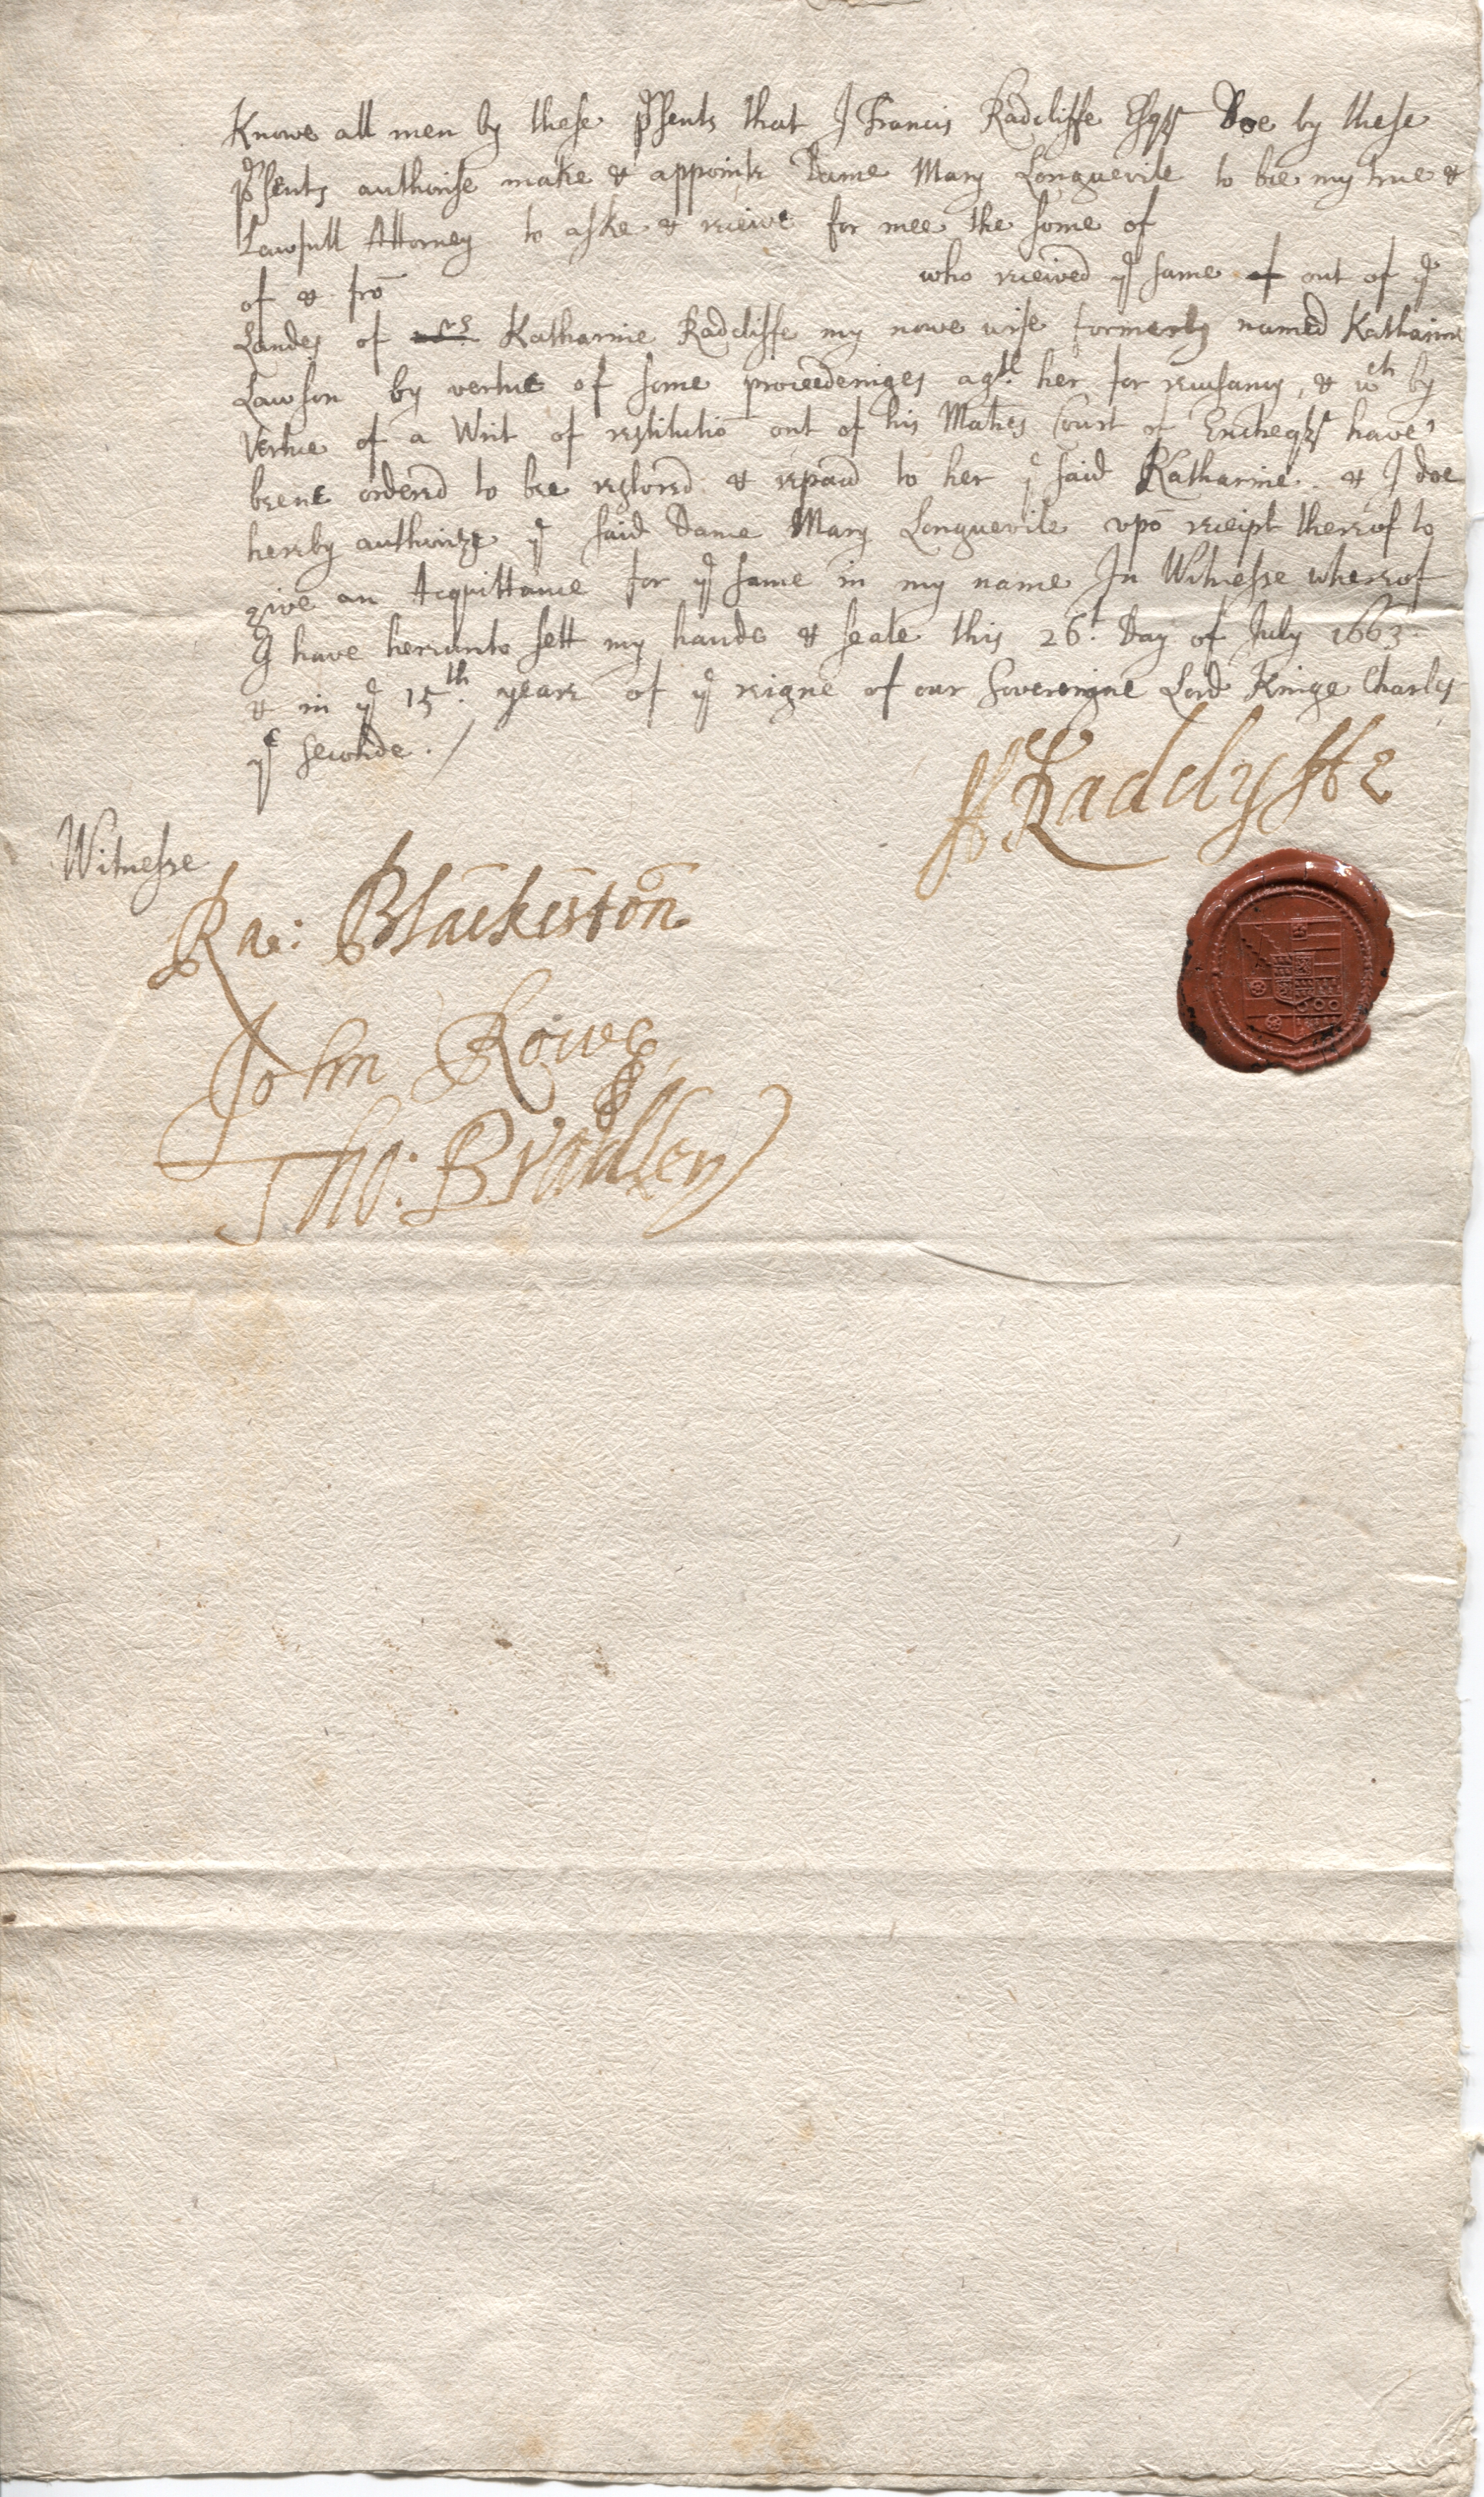 Knowe all men by these p'sents that I Francis Radcliffe Esqr Doe by these
p'sents authorise make & appointe Dame Mary Longuevile to bee my true &
Lawfull Attorney to aske & receive for mee the some of
of & frō who received ye same of out of ye
Landes of Mrs Katharine Radcliffe my nowe wife formerly named Katharine
Lawson by vertue of some proceedeinges agst her for recusancy, & wch by
vertue of a Writ of restitutiō out of his Maties Court of Exchequer have
beene ordered to bee restored & repaid to her ye said Katharine & I doe
hereby authorize ye said Dame Mary Longuevile vpō receipt thereof to
give an Acquittance for ye same in my name In Witnesse whereof
I have hereunto sett my hande & seale this 26t. Day of July 1663.
& in ye 15th. yeare of ye reigne of our Sovereigne Lord Kinge Charles
ye seconde. /
ff Radclyffe
Witnesse
Ra: Blackiston
John Rowe
Tho: Bradley